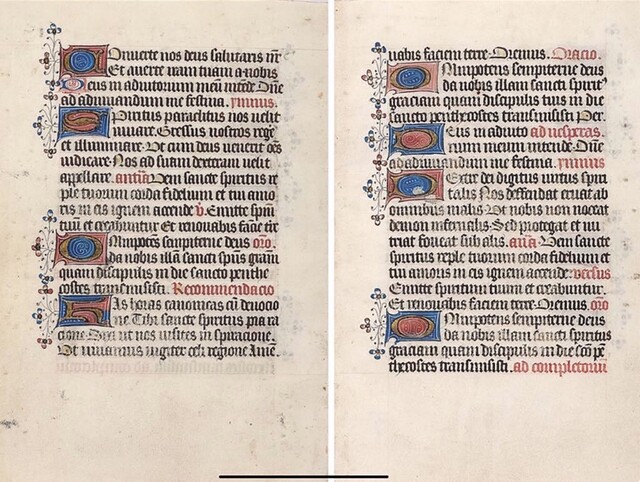 COnuerte nos deus salutaris nr̄
Et auerte iram tuam a nobis
Deus in adiutorium meū intēde Dn̄e
ad adiuuandum me festina. ymnus.
SPiritus paraclitus nos uelit
iuuare. Gressus nostros rege
et illuminare. Vt cum deus uenerit oēs
iudicare. Nos ad suam dexteram uelit
appellare. antiā Veni sancte spiritus re
ple tuorum corda fidelium et tui amo
ris in eis ignem accende v̄. Emitte spiri
tum et creabuntur Et renouabis faciē tr̄e
OMnipotēs sempiterne deus oro.
da nobis illam sancti spūs gratiam
quam discipulis in die sancto penthe
costes transmisisti. Recomendacio
HAs horas canonicas cū deuocio
ne. Tibi sancte spiritus pia ra
cione. Dixi ut nos uisites inspiracione.
Vt uiuamus iugiter celi regione Amē.
uabis faciem terre. Oremus. Oracio.
OMnipotens sempiterne deus
da nobis illam sancti spirit⁹
graciam quam discipulis tuis in die
sancto penthecostes transmisisti Per
DEus in adiuto ad uesperas.
rium meum intende. Dn̄e
ad adiuuandum me festina. ymnus
DExtre dei digitus uirtus spiri
talis Nos deffendat eruat ab
omnibus malis Vt nobis non noceat
demon infernalis. Sed protegat et nu
triat foueat sub alis. antā. Veni sancte
spiritus reple tuorum corda fidelium et
tui amoris in eis ignem accende. versus
Emitte spiritum tuum et creabuntur.
Et renouabis faciem terre. Oremus. oro
OMnipotens sempiterne deus
da nobis illam sancti spiritus
graciam quam discipulis in die scō pē
thecostes transmisisti. ad completoriū